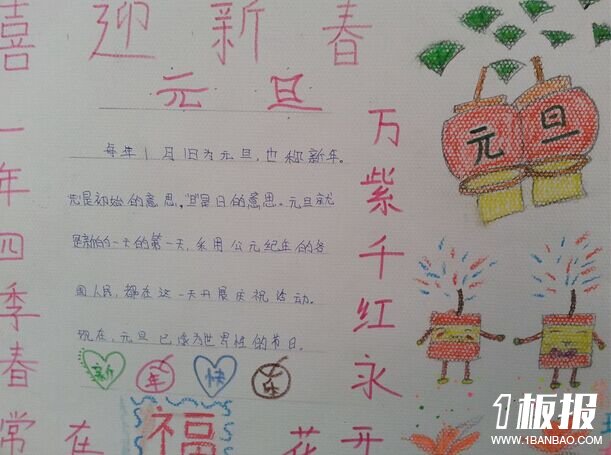 喜迎新春
元旦
每年1月1日为元旦，也称新年。
元是初始的意思，"旦"是日的意思。元旦就
是新的一天的第一天，采用公元纪年的各
国人民，都在这一天开展庆祝活动。
现在，元旦已成为世界性的节日。
新年快乐
一年四季春常在
万紫千红永开花
福
元旦
1板报
WWW.1BANBAO.COM